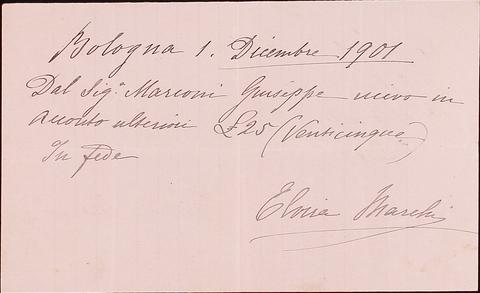 Bologna 1. Dicembre 1901
Dal Sig.r Marconi Giuseppe ricevo in
acconto ulteriori £25 (Venticinque)
In fede
Elvira Marchi